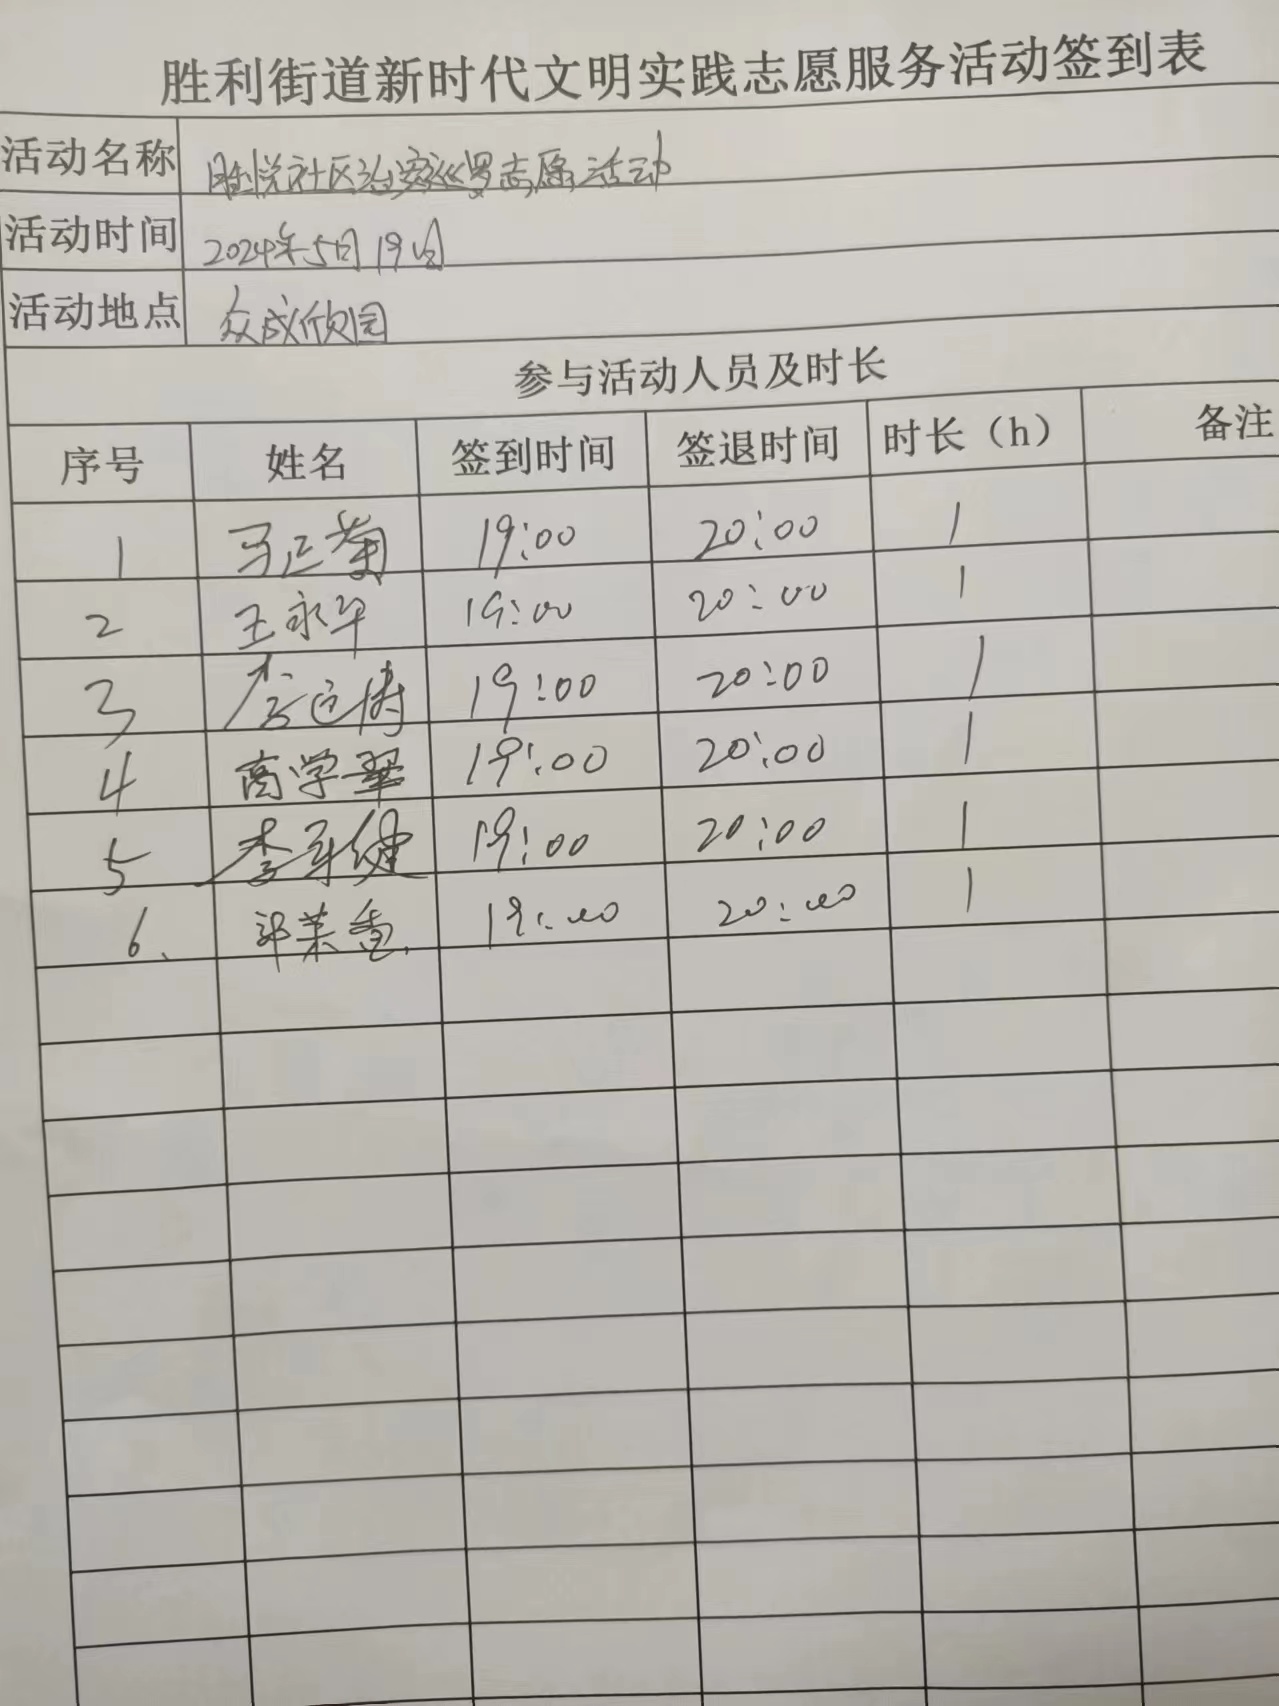 胜利街道新时代文明实践志愿服务活动签到表
活动名称 胜悦社区治安巡罗志愿活动
活动时间 2024年5月19日
活动地点 众成欣园
参与活动人员及时长
序号 姓名 签到时间 签退时间 时长（h） 备注
1 马正菊 19:00 20:00 1
2 王永华 19:00 20:00 1
3 李 19:00 20:00 1
4 商学翠 19:00 20:00 1
5 李军健 19:00 20:00 1
6、 郭荣香. 19:00 20:00 1